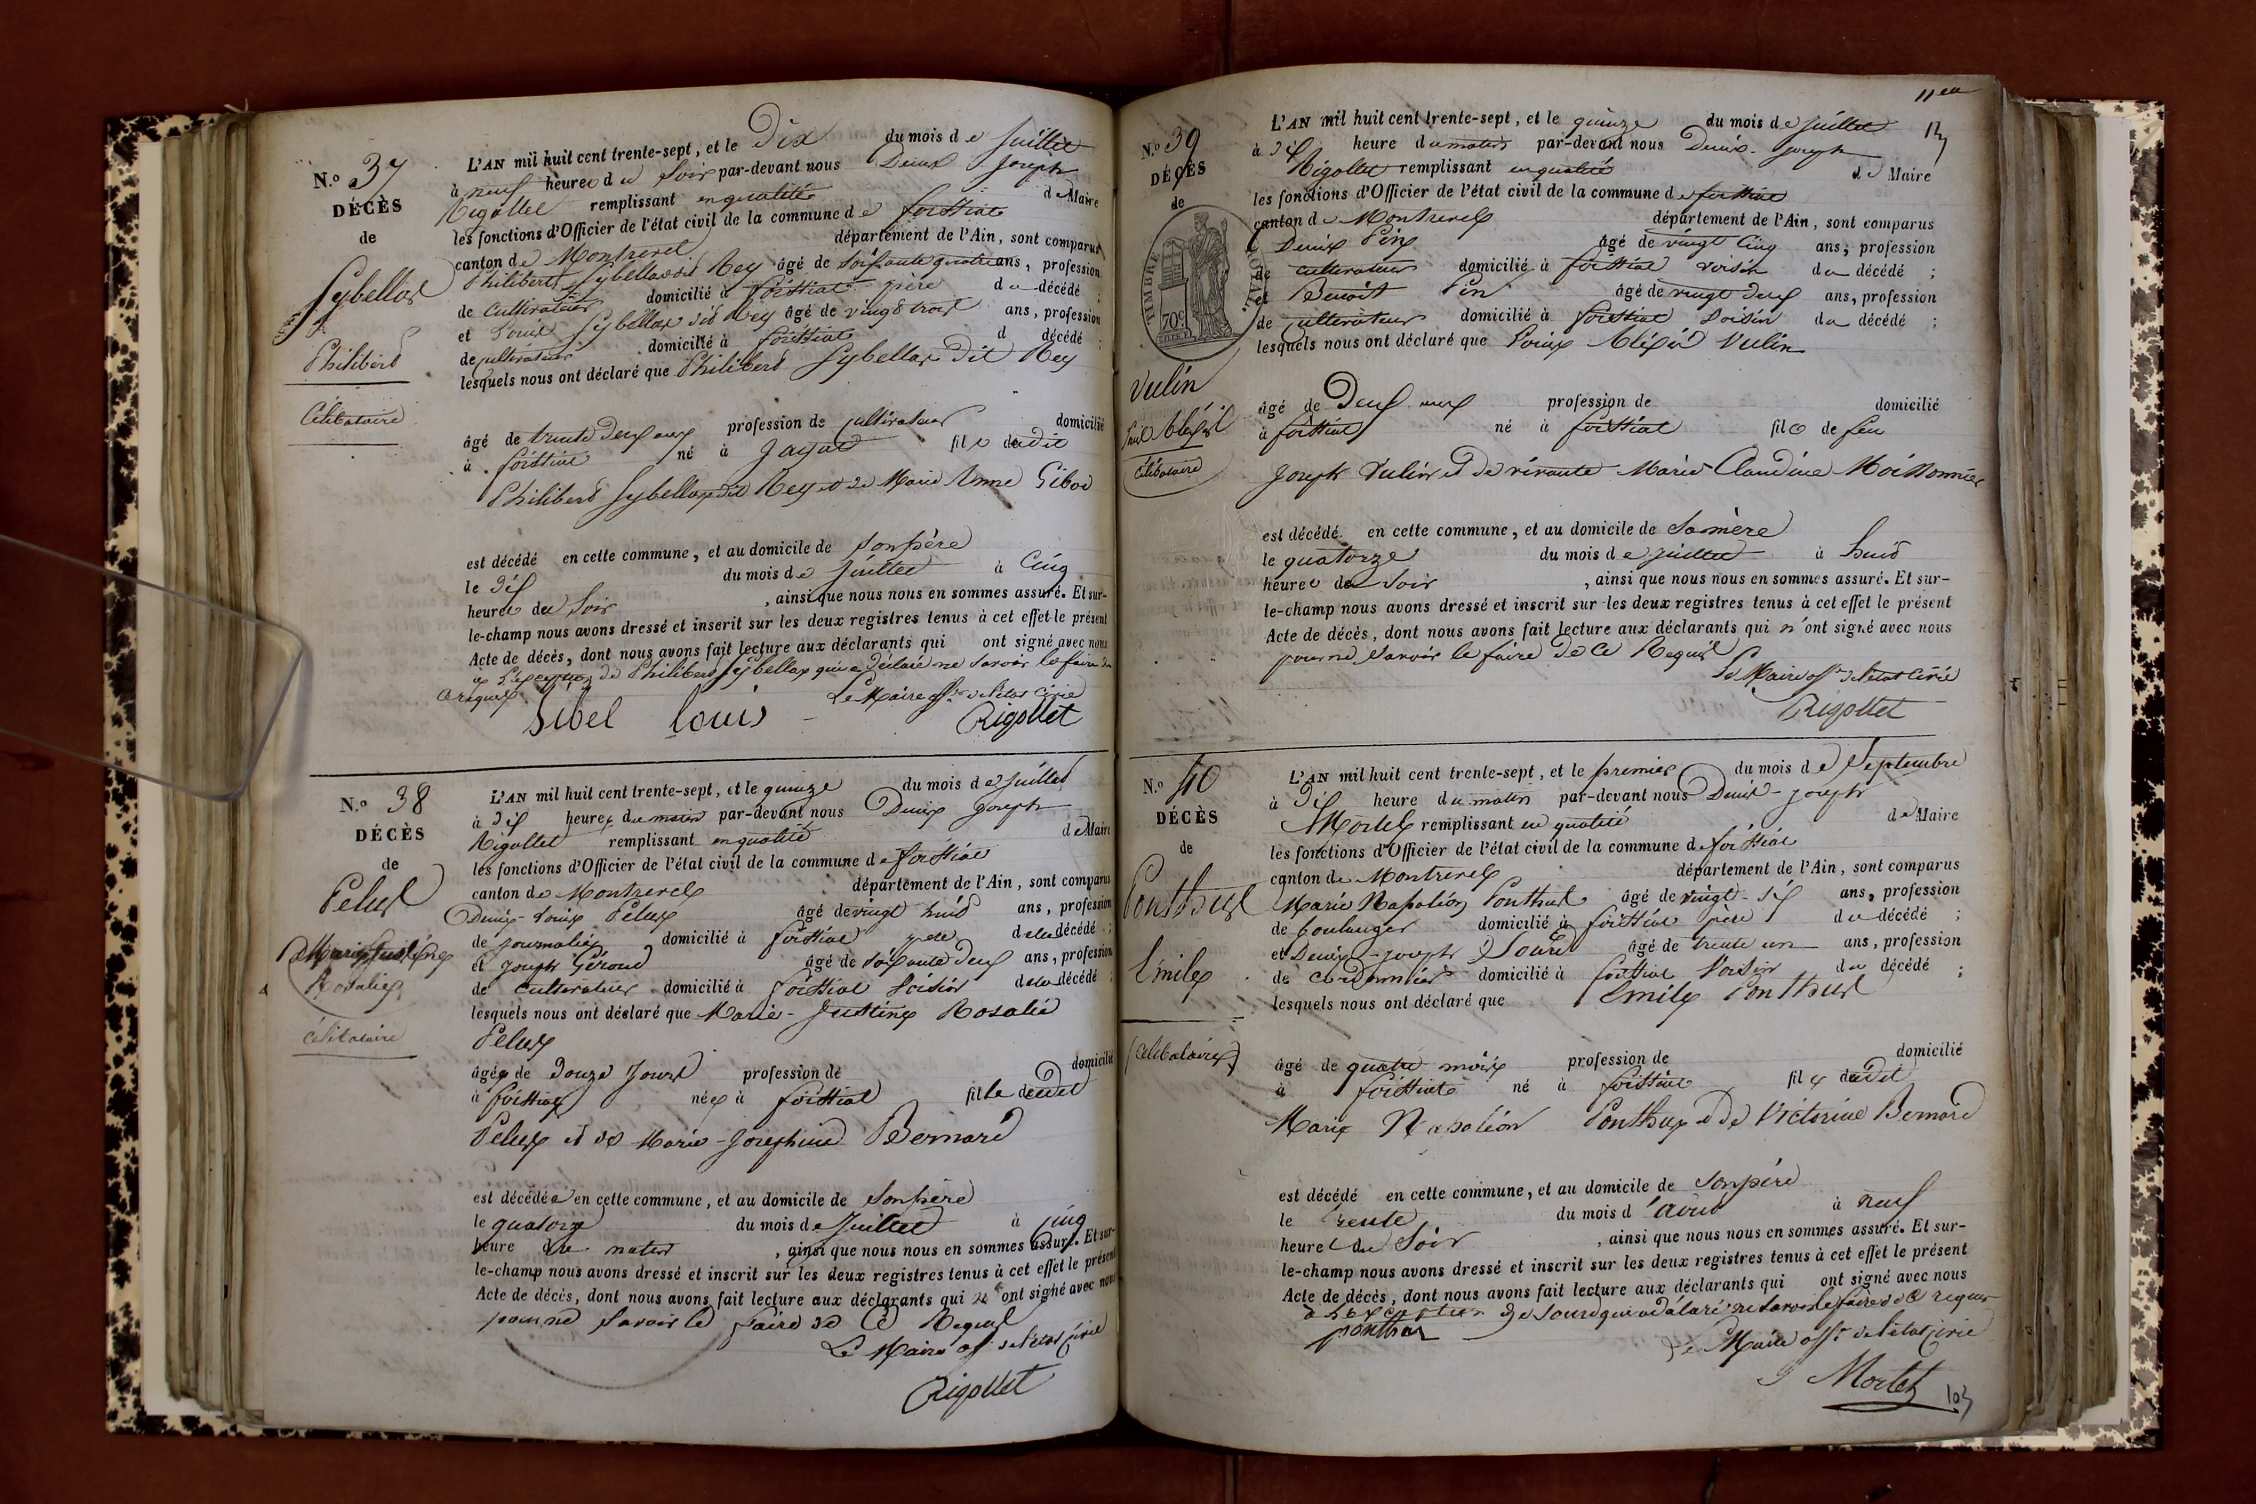 N.o 37
DÉCÈS
de
Sybellas
Philibert
Célibataire
L'AN mil huit cent trente-sept, et le Dix du mois de juillet
à neuf heures du Soir par-devant nous Denis Joseph
Rigollet remplissant en qualité de Maire
les fonctions d'Officier de l'état civil de la commune de foissiat
canton de Montrevel département de l'Ain, sont comparus
Philibert Sybellas dit Rey âgé de Soixante quatre ans, profession
de Cultivateur domicilié à foissiat père du décédé ;
et Louis Sybellas dit Rey âgé de vingt trois ans, profession
de cultivateur domicilié à foissiat d décédé ;
lesquels nous ont déclaré que Philibert Sybellas Dit Rey
âgé de trente Deux ans profession de cultivateur domicilié
à foissiat né à Jayat fils dudit
Philibert Sybellas dit Rey et de Marie Anne Gibod
est décédé en cette commune, et au domicile de Son père
le dix du mois de juillet à Cinq
heures du Soir, ainsi que nous nous en sommes assuré. Et sur-
le-champ nous avons dressé et inscrit sur les deux registres tenus à cet effet le présent
Acte de décès, dont nous avons fait lecture aux déclarants qui ont signé avec nous
à l'exception de Philibert Sybellas qui a déclaré ne Savoir le faire de
ce requis
Le Maire off. de l'état Civil
Sibel louis
Rigollet
N.o 38
DÉCÈS
de
Pelus
Marie Justine
Rosalie
célibataire
L'AN mil huit cent trente-sept, et le quinze du mois de juillet
à dix heures du matin par-devant nous Denis Joseph
Rigollet remplissant en qualité de Maire
les fonctions d'Officier de l'état civil de la commune de foissiat
canton de Montrevel département de l'Ain, sont comparus
Denis-Louis Pelux âgé de vingt huit ans, profession
de journalier domicilié à foissiat père de la décédé ;
et Joseph Géroud âgé de Soixante Deux ans, profession
de cultivateur domicilié à foissiat voisin de la décédé ;
lesquels nous ont déclaré que Marie-Justine Rosalie
Pelux
âgée de Douze Jours profession de domicilié
à foissiat née à foissiat fille dudit
Pelux et de Marie-Josephine Bernard
est décédée en cette commune, et au domicile de Son père
le quatorze du mois de Juillet à cinq
heure du matin, ainsi que nous nous en sommes assuré. Et sur-
le-champ nous avons dressé et inscrit sur les deux registres tenus à cet effet le présent
Acte de décès, dont nous avons fait lecture aux déclarants qui n'ont signé avec nous
pour ne Savoir le faire de Ce Requis
Le Maire off. de l'état civil
Rigollet
N.o 39
DÉCÈS
de
TIMBRE ROYAL
70c
Vulin
Louis Alexis
célibataire
L'AN mil huit cent trente-sept, et le quinze du mois de juillet
à dix heure du matin par-devant nous Denis-Joseph
Rigollet remplissant en qualité de Maire
les fonctions d'Officier de l'état civil de la commune de foissiat
canton de Montrevel département de l'Ain, sont comparus
Denis Pin âgé de vingt Cinq ans, profession
de cultivateur domicilié à foissiat voisin du décédé ;
et Benoit Pin âgé de vingt deux ans, profession
de cultivateur domicilié à foissiat voisin du décédé ;
lesquels nous ont déclaré que Louis Alexis Vulin
âgé de Deux ans profession de domicilié
à foissiat né à foissiat fils de feu
Joseph Vulin et de vivante Marie Claudine Moissonnier
est décédé en cette commune, et au domicile de Sa mère
le quatorze du mois de juillet à huit
heures du Soir, ainsi que nous nous en sommes assuré. Et sur-
le-champ nous avons dressé et inscrit sur les deux registres tenus à cet effet le présent
Acte de décès, dont nous avons fait lecture aux déclarants qui n'ont signé avec nous
pour ne Savoir le faire de Ce Requis
Le Maire off. de l'état Civil
Rigollet
N.o 40
DÉCÈS
de
Ponthus
Emile
Célibataire
L'AN mil huit cent trente-sept, et le premier du mois de Septembre
à dix heure du matin par-devant nous Denis-Joseph
Mortel remplissant en qualité de Maire
les fonctions d'Officier de l'état civil de la commune de foissiat
canton de Montrevel département de l'Ain, sont comparus
Marie Napoléon Ponthus âgé de vingt-six ans, profession
de boulanger domicilié à foissiat père du décédé ;
et Denis-Joseph Sourd âgé de trente un ans, profession
de Cordonnier domicilié à foissiat Voisin du décédé ;
lesquels nous ont déclaré que Emile Ponthus
âgé de quatre mois profession de domicilié
à foissiat né à foissiat fils dudit
Marie Napoléon Ponthus et de Victorine Bernard
est décédé en cette commune, et au domicile de Son père
le trente du mois d'août à neuf
heures du Soir, ainsi que nous nous en sommes assuré. Et sur-
le-champ nous avons dressé et inscrit sur les deux registres tenus à cet effet le présent
Acte de décès, dont nous avons fait lecture aux déclarants qui ont signé avec nous
à l'exception de Sourd qui a déclaré ne Savoir le faire de ce requis
ponthus
Le Maire off. de l'état civil
Mortel